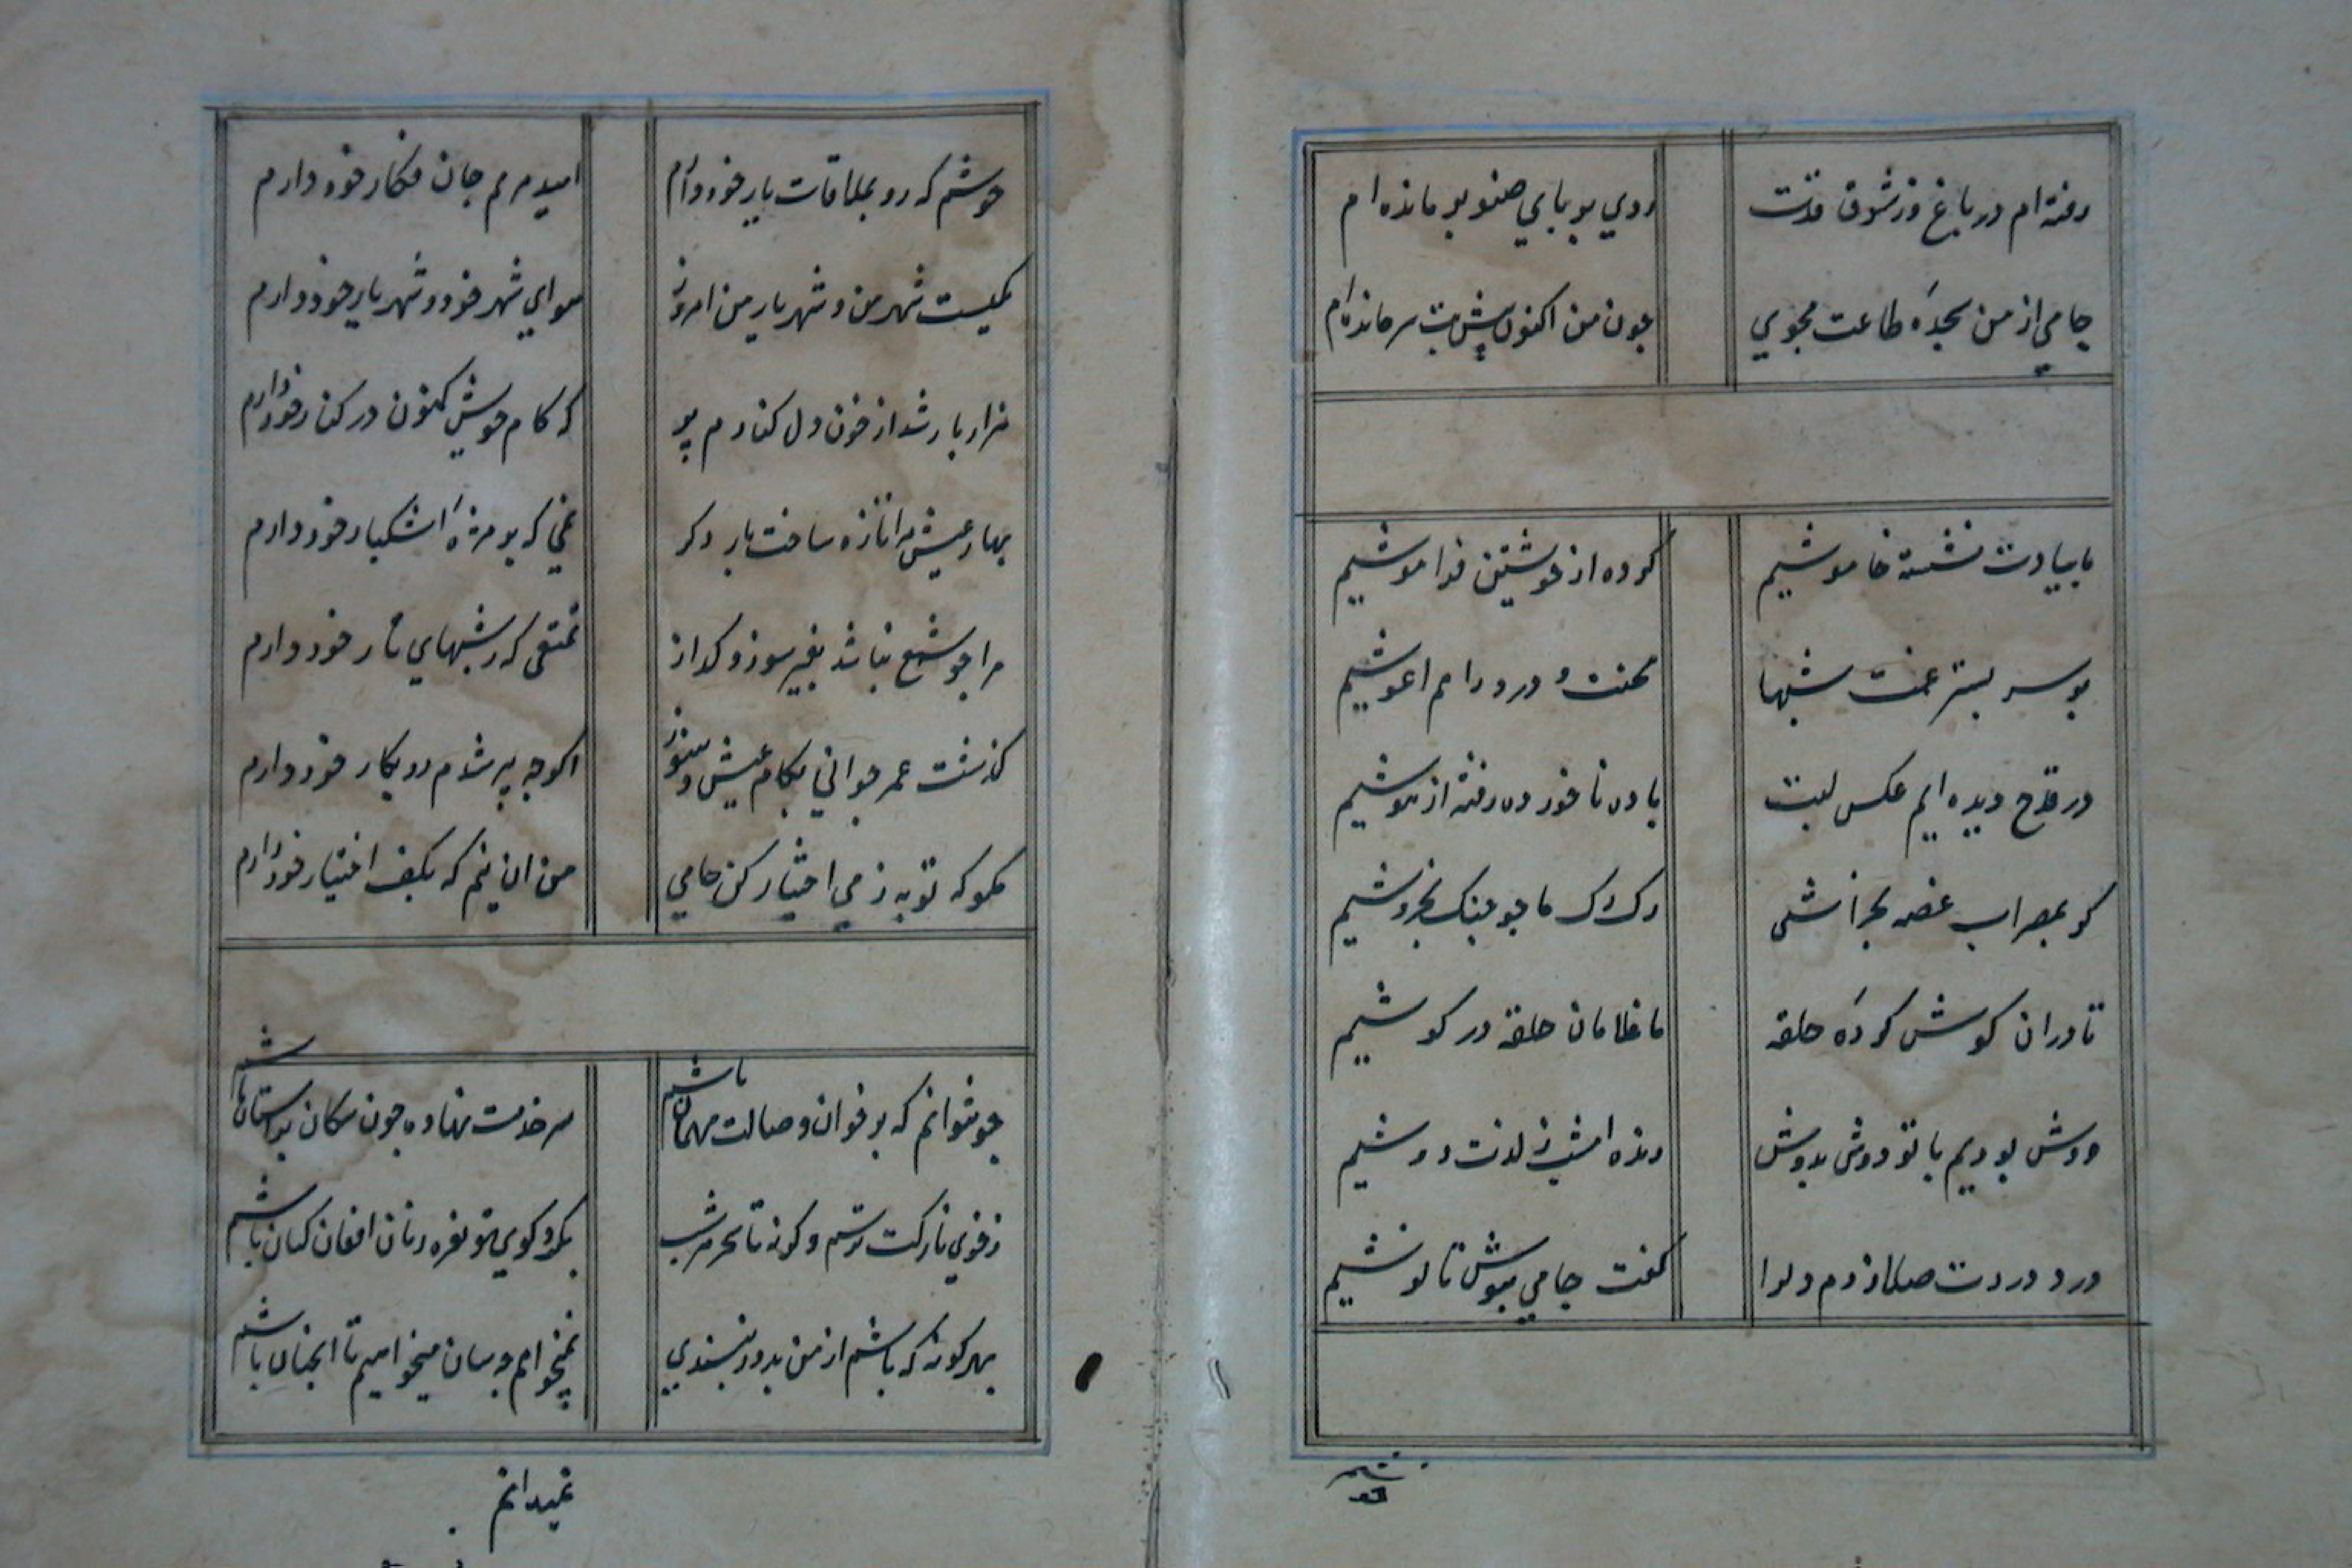 رفته ام در باغ وز شوق قدت
روي بر پاي صنوبر مانده ام
جامي از من سجدهٔ طاعت مجوي
چون من اكنون پيش بت سر مانده ام
ما بيادت نشسته خاموشيم
كرده از خويشتن فراموشيم
بر سر بستر غمت شبها
محنت و درد را هم اغوشيم
در قدح ديده ايم عكس لبت
باده ناخورده رفته از هوشيم
كر بمضراب غصه بخراشى
رك رك ما چو چنك بخروشيم
تا دران كوش كردهٔ حلقه
ما غلامان حلقه در كوشيم
دوش بوديم با تو دوش بدوش
زنده امشب ز لذت دوشيم
درد دردت صلا زدم دلرا
كفت جامي بنوش تا نوشيم
خوشم كه رو بملاقات يار خود دارم
اميد مرهم جان فكار خود دارم
يكيست شهر من و شهريار من امروز
هواي شهر خود و شهريار خود دارم
هزار بار شد از خون دل كنارم پر
كه كام خويش كنون در كنار خود دارم
بهار عيش مرا تازه ساخت بار دكر
نمي كه بر مژهٔ اشكبار خود دارم
مرا چو شمع نباشد بغير سوز و كداز
تمتعى كه ز شبهاي تار خود دارم
كذشت عمر جواني بكام عيش و هنوز
اكرچه پير شدم رو بكار خود دارم
مكو كه توبه ز مي اختيار كن جامي
من ان نيم كه بكف اختيار خود دارم
چو نتوانم كه بر خوان وصالت ميهمان باشم
سر خدمت نهاده چون سكان بر استان باشم
ز خوي نازكت ترسم وكرنه تا سحر هر شب
بكرد كوي تو نعره زنان افغان كنان باشم
بهر كونه كه باشم از من بدروز نپسندي
نميخواهم چه سان ميخواهيم تا انچنان باشم
نميدانم